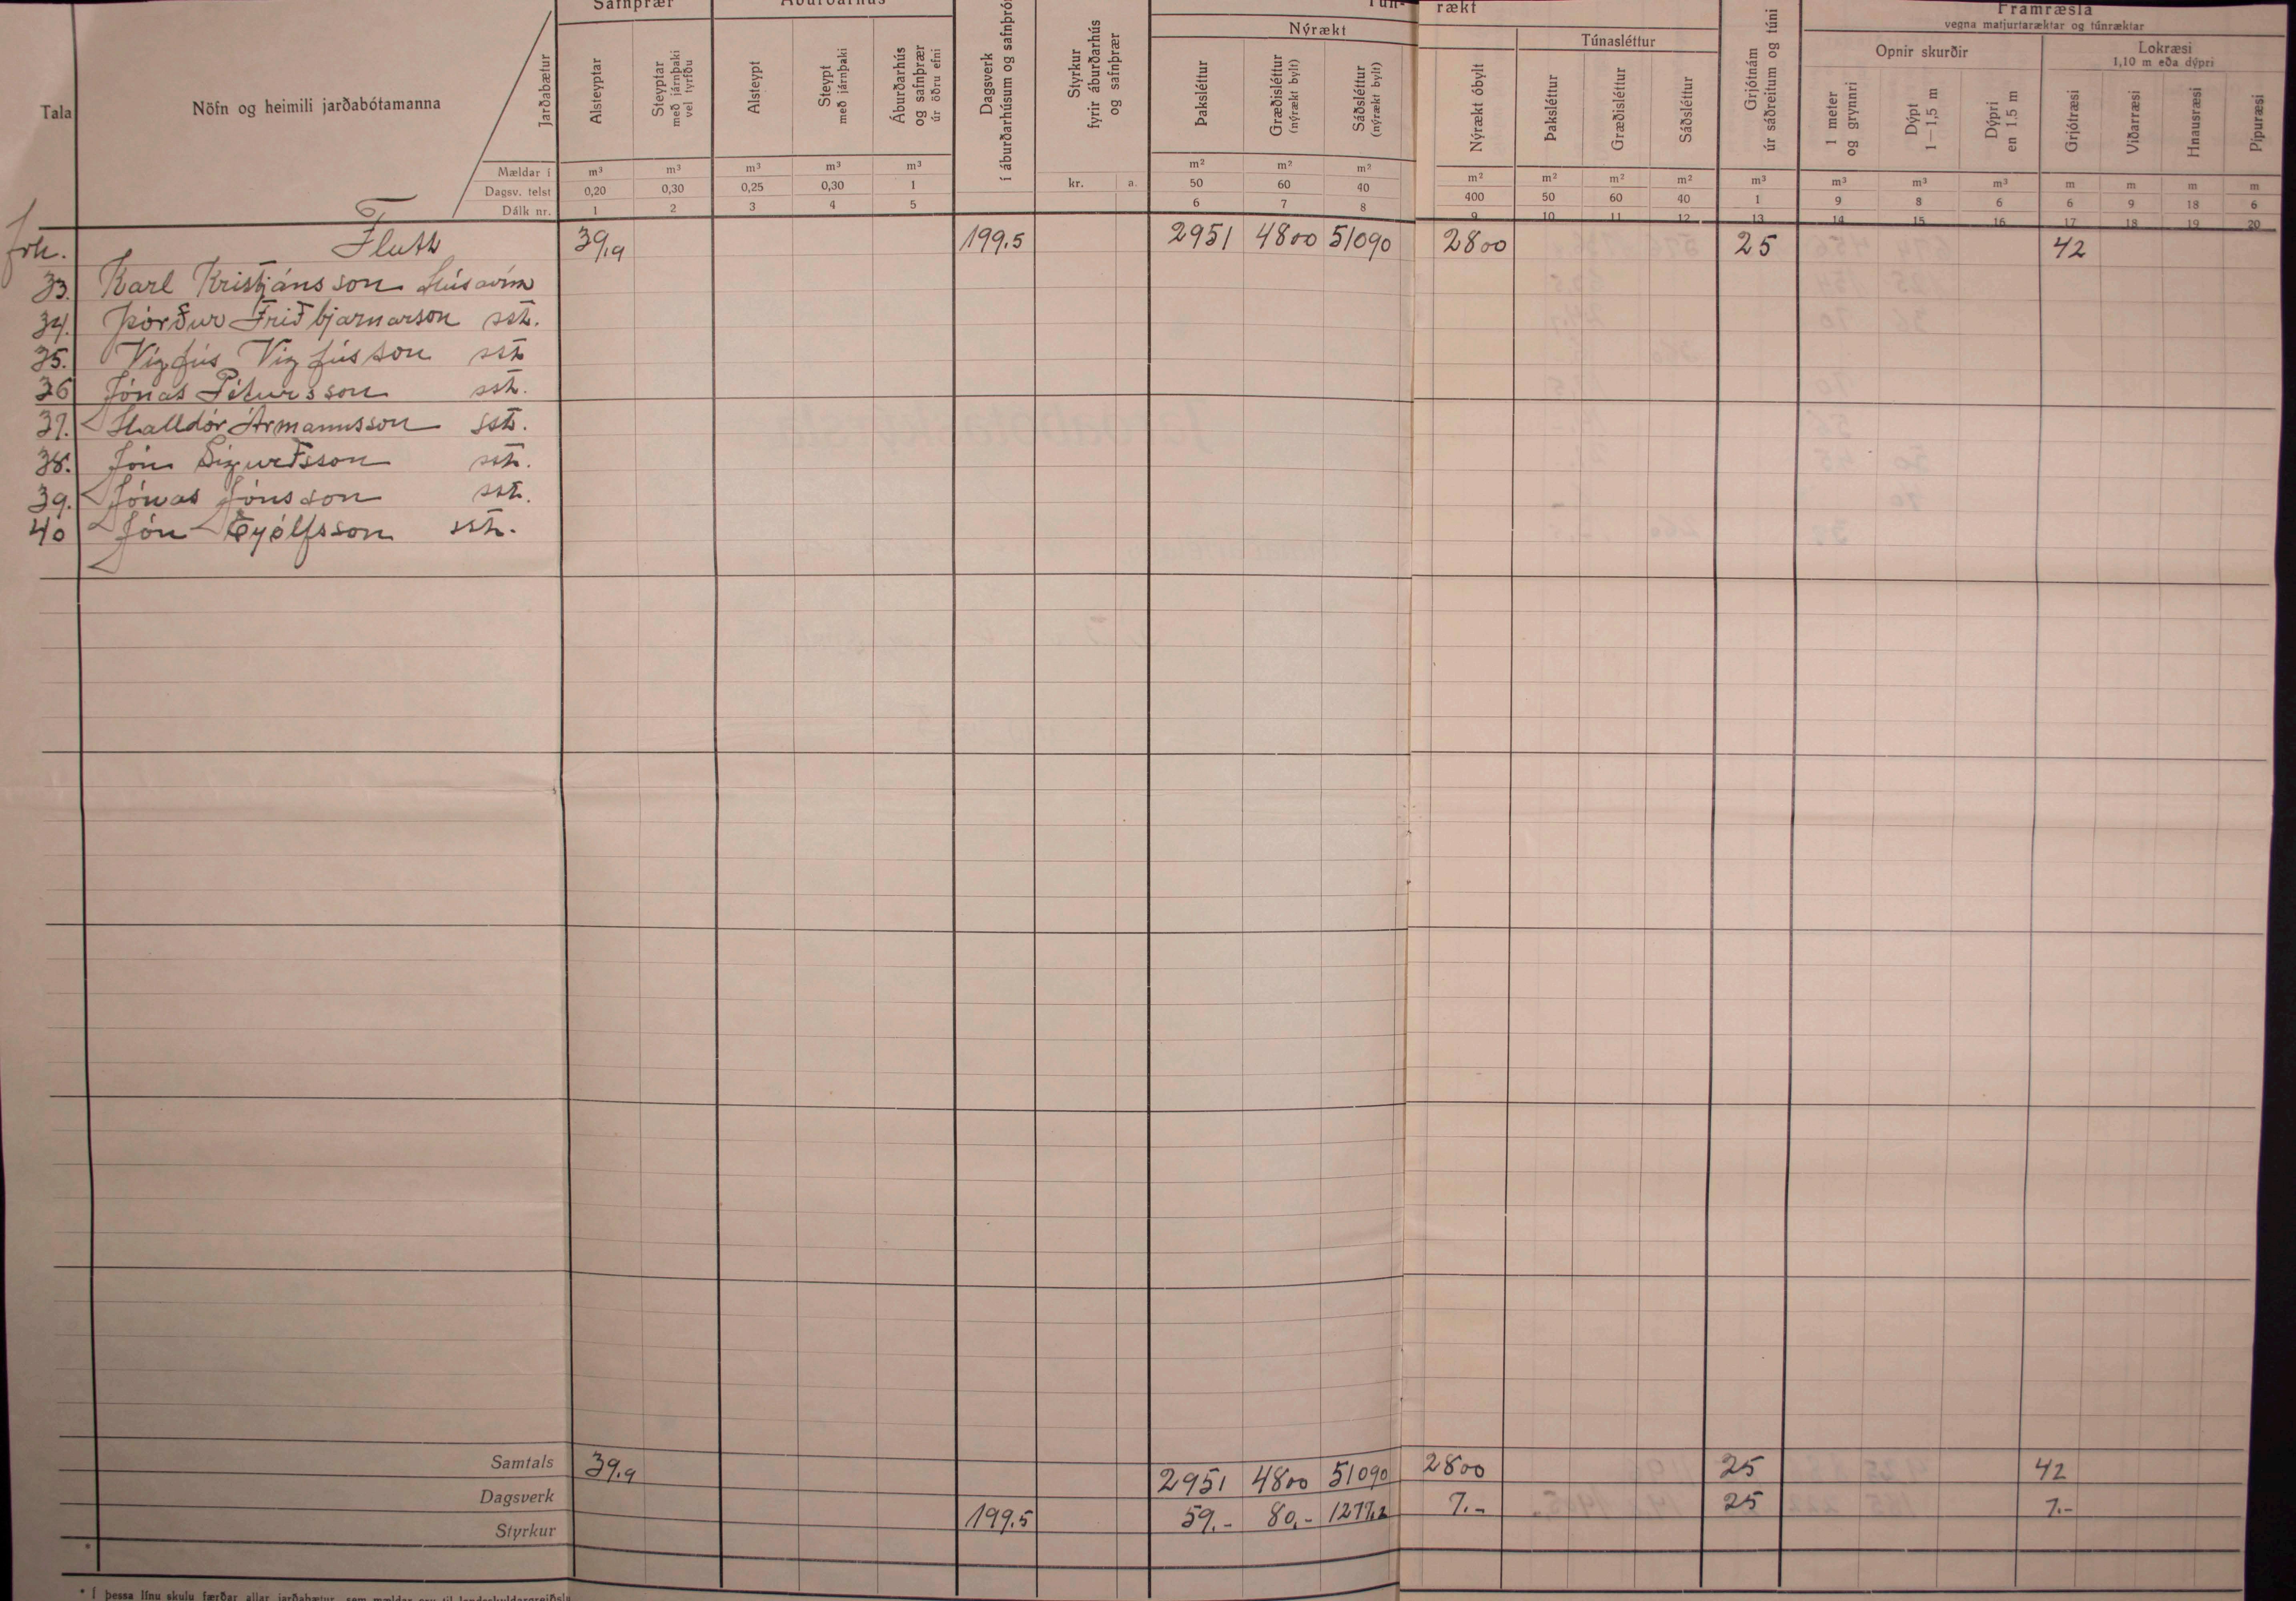 Safnþrær Áburðarhús Tún- rækt Framræsla
vegna matjurtaræktar og túnræktar
Nýrækt Túnasléttur Opnir skurðir Lokræsi
1,10 m eða dýpri
Tala
Nöfn og heimili jarðabótamanna
Jarðabætur
Alsteyptar
Steyptar með járnþaki vel fyrföu
Alsteypt
Steypt með járnþaki
Áburðarhús og safnþrær úr öðru efni
Dagsverk í áburðarhúsum og safnþró
Styrkur fyrir áburðarhús og safnþrær
Þaksléttur
Græðisléttur (nýrækt bylt)
Sáðsléttur (nýrækt bylt)
Nýrækt óbylt
Þaksléttur
Græðisléttur
Sáðsléttur
Grjótnám úr sáðreitum og túni
1 meter og grynnri
Dýpt 1—1,5 m
Dýpri en 1.5 m
Grjótræsi
Viðarræsi
Hnausræsi
Pípuræsi
Mældar í m³ m³ m³ m³ m³ m² m² m² m² m² m² m² m³ m³ m³ m³ m m m m
Dagsv. telst 0,20 0,30 0,25 0,30 1 kr. a. 50 60 40 400 50 60 40 1 9 8 6 6 9 18 6
Dálk nr. 1 2 3 4 5 6 7 8 9 10 11 12 13 14 15 16 17 18 19 20
Flutt 39,9 199,5 2951 4800 51090 2800 25 42
33. Karl Kristjánsson Húsavík
34. Þórður Friðbjarnarson sst.
35. Vigfús Vigfússon sst
36 Jónas Pétursson sst.
37. Halldór Ármannsson sst.
38. Jón Sigurðsson sst.
39. Jónas Jónsson sst.
40 Jón Eyólfsson sst.
Samtals 39,9 2951 4800 51090 2800 25 42
Dagsverk 199,5 59.- 80.- 1277,2 7.- 25 7.-
Styrkur
* Í þessa línu skulu færðar allar jarðabætur, sem mældar eru til landsskuldargreiðslu